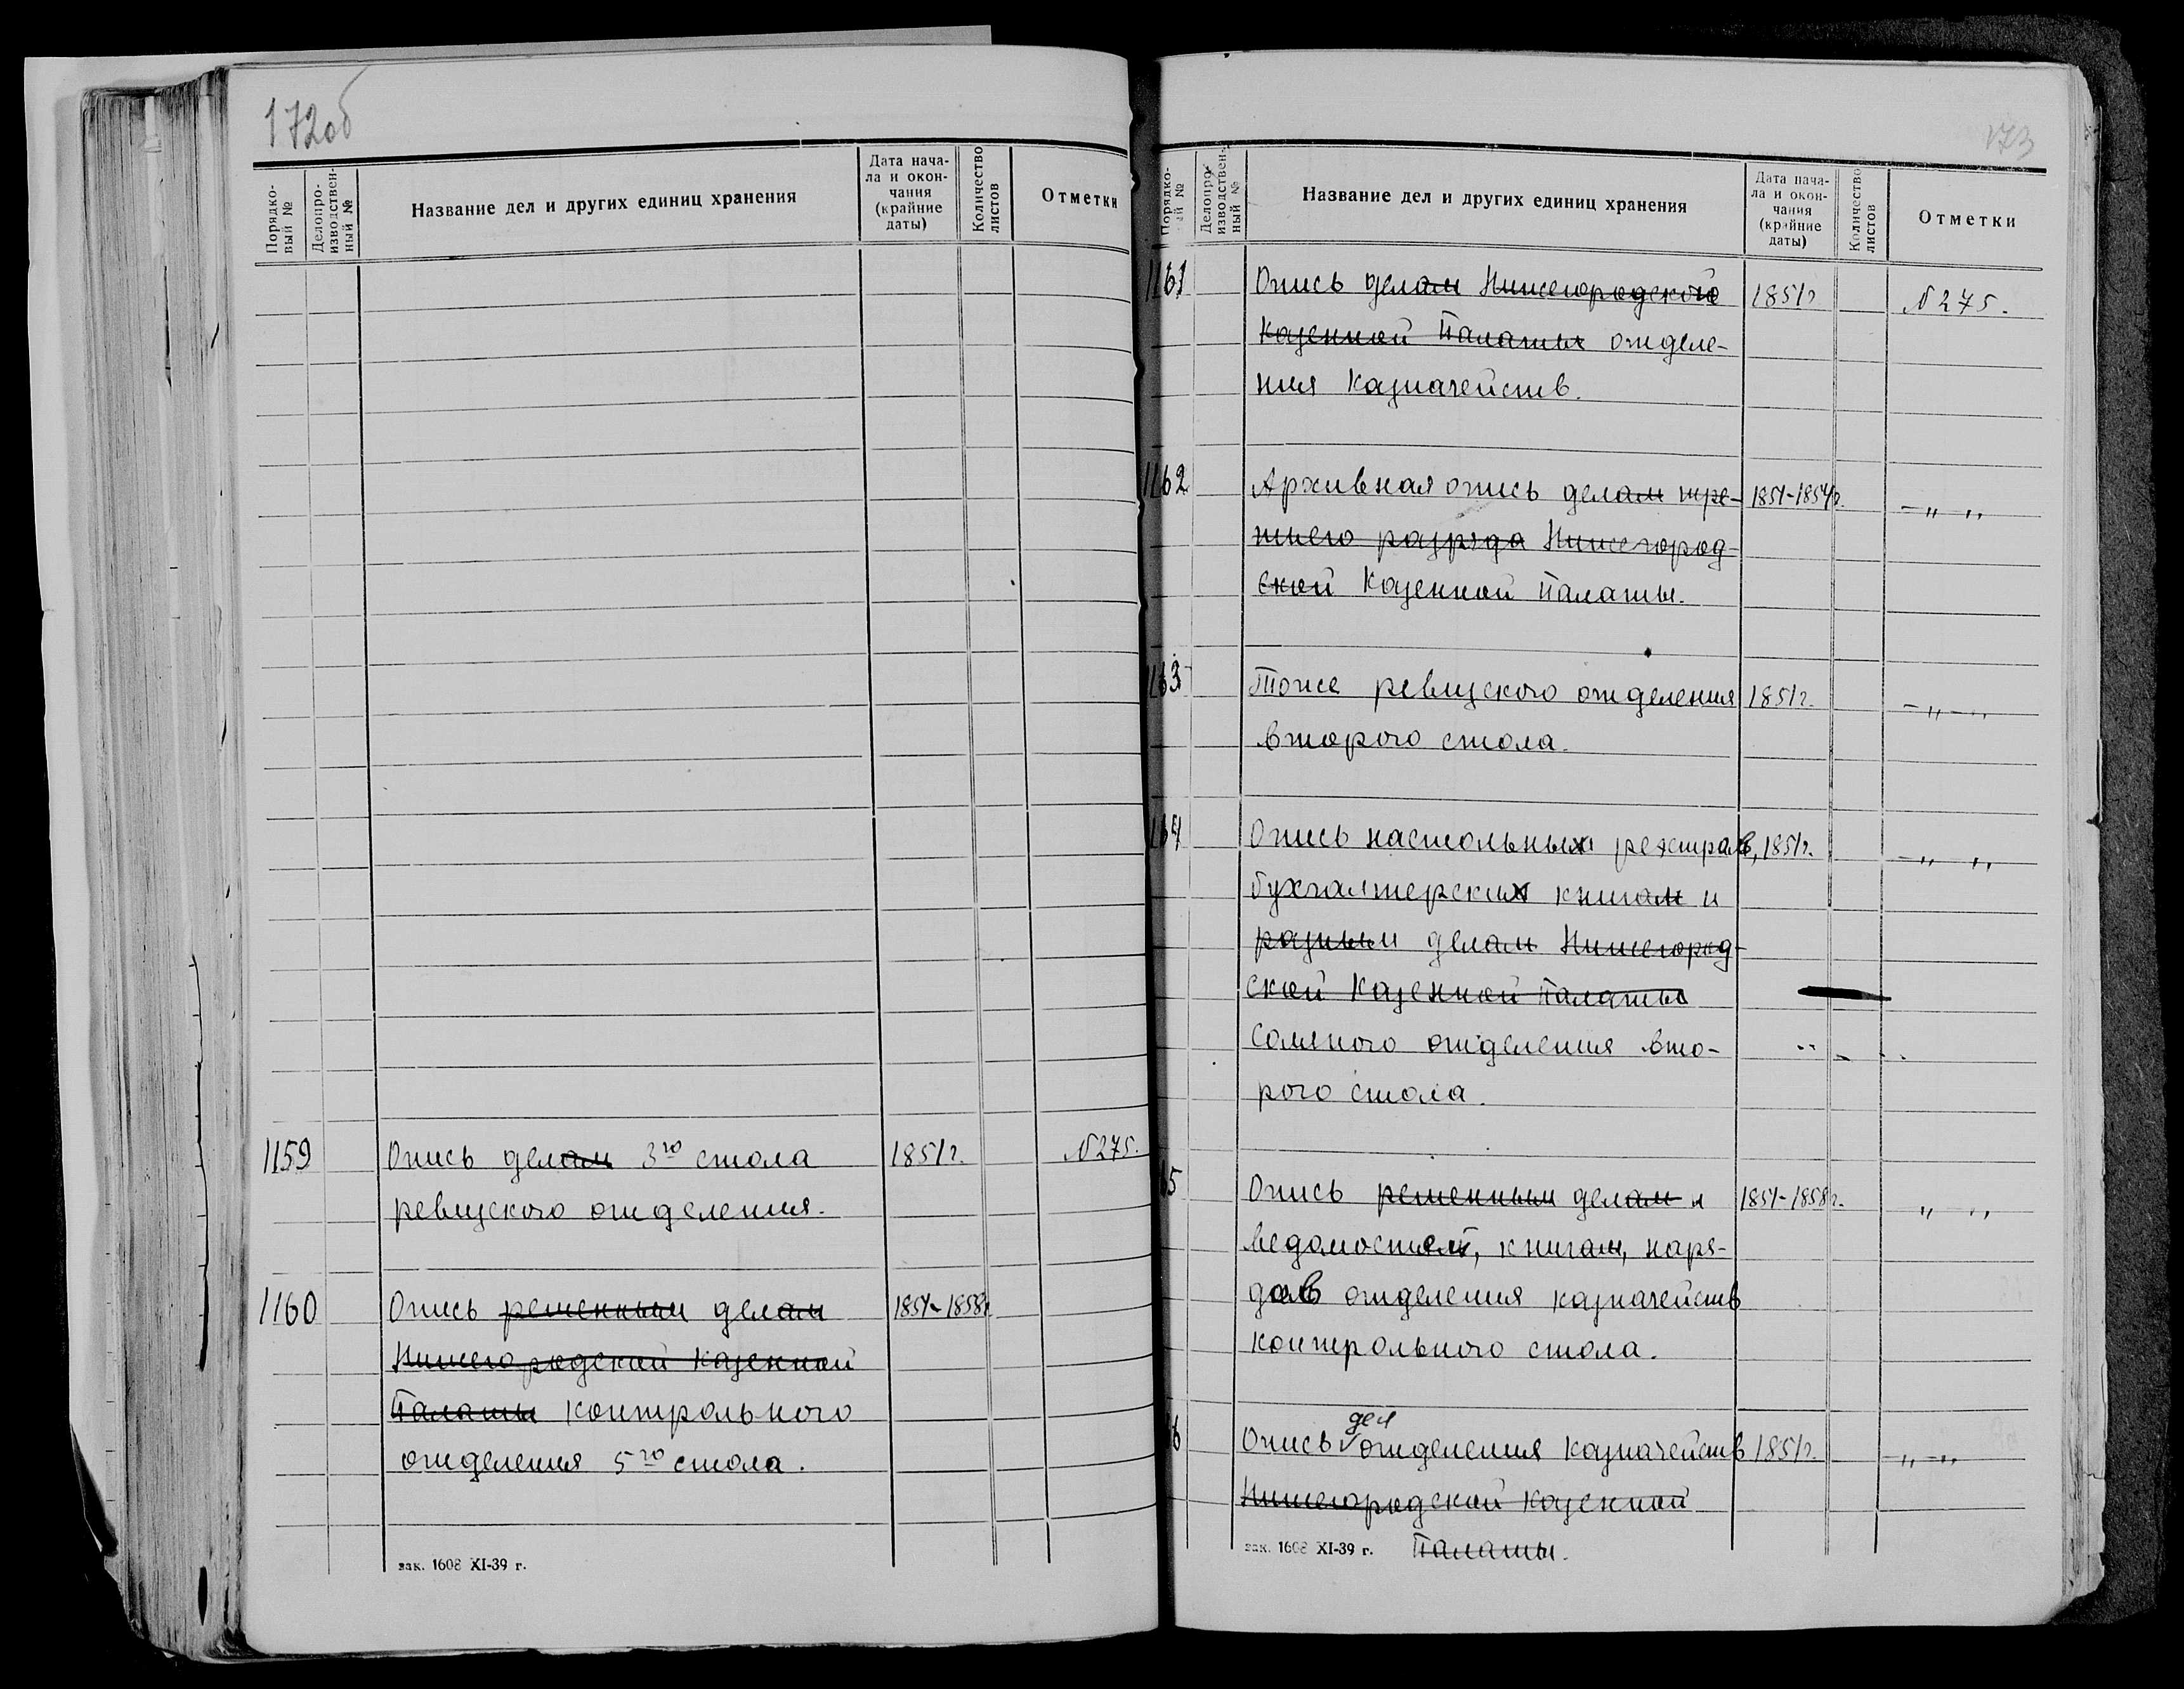 172об
Порядко-
вый №
Делопро-
изводствен-
ный №
Название дел и других единиц хранения
Дата нача-
ла и окон-
чания
(крайние
даты)
Количество
листов
Отметки
1159 Опись делам 3го стола 1851г. №275.
ревизского отделения.
1160 Опись решенным делам 1851-1858г.
Нижегородской Казенной
Палаты контрольного
отделения 5го стола.
зак. 1608 XI-39 г.
173
Порядко-
вый №
Делопро-
изводствен-
ный №
Название дел и других единиц хранения
Дата нача-
ла и окон-
чания
(крайние
даты)
Количество
листов
Отметки
1161 Опись делам Нижегородской 1851г №275.
Казенной Палаты отделе-
ния Казначейств.
1162 Архивная опись делам тре- 1851-1854г. -„ „
тьего разряда Нижегород-
ской Казенной Палаты.
1163 Тоже ревизского отделения 1851г. -„-„
второго стола.
1164 Опись настольных регистров, 1851г. -„ „
бухгалтерских книгам и
разным делам Нижегород-
ской Казенной Палаты
Соляного отделения вто-
рого стола.
65 Опись решенным делам и 1851-1858г. „ „
ведомостей, книгам, наря-
дов отделения казначейств
контрольного стола.
6 Опись дел отделения казначейств 1851г. „-„
Нижегородской казенной
зак. 1608 XI-39 г. Палаты.